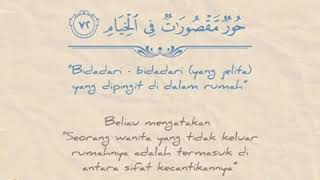 حُورٌ مَّقْصُورَٰتٌ فِى ٱلْخِيَامِ ٧٢
"Bidadari - bidadari (yang jelita)
yang dipingit di dalam rumah"
Beliau mengatakan
"Seorang wanita yang tidak keluar
rumahnya adalah termasuk di
antara sifat kecantikannya"